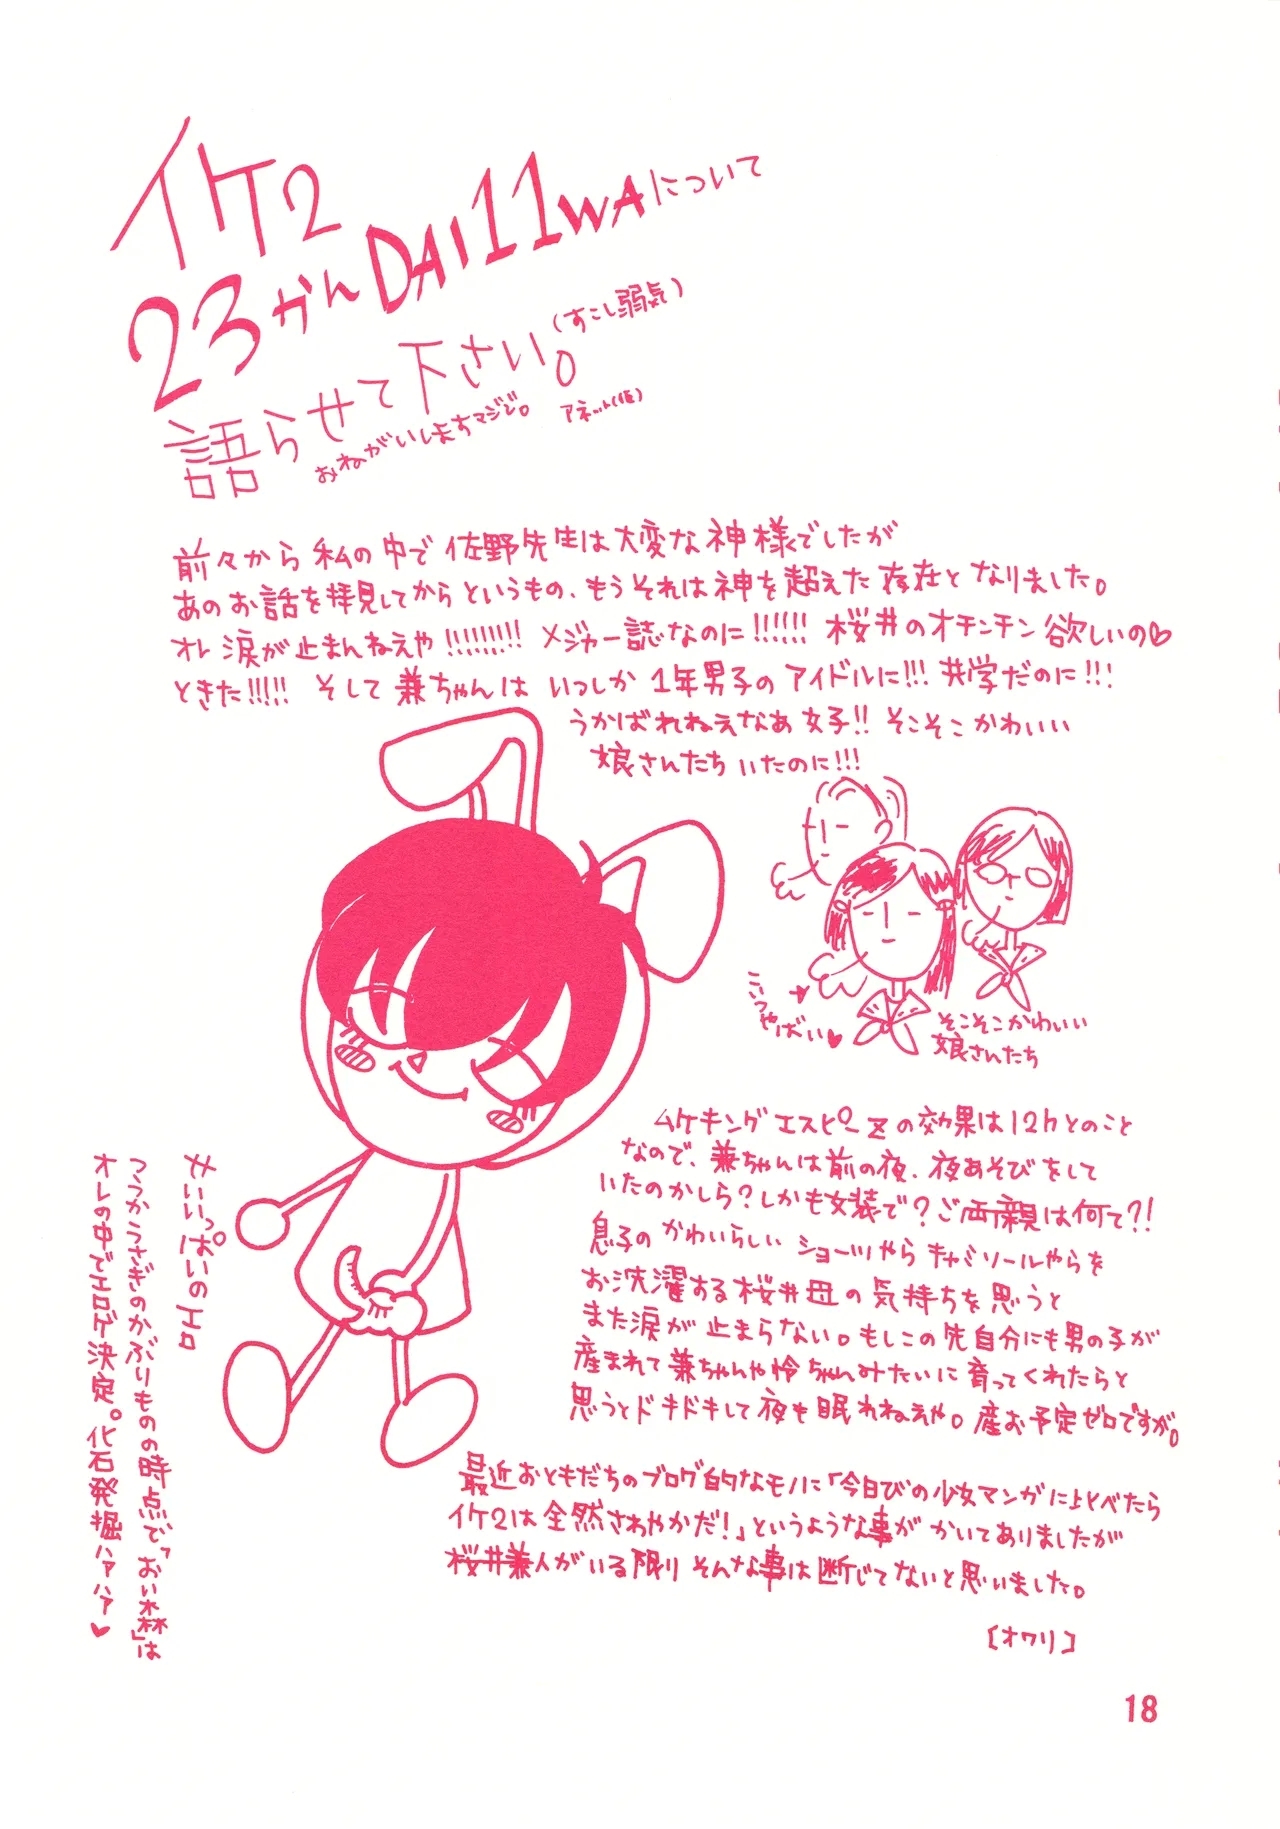 イケ2
23かんDAI11WAについて
語らせて下さい。(すこし弱気)
おねがいしますマジで。
アネット(仮)
前々から私の中で佐野先生は大変な神様でしたが
あのお話を拝見してからというもの、もうそれは神を超えた存在となりました。
オレ涙が止まんねえや!!!!!!!!! メジャー誌なのに!!!!!! 桜井のオチンチン欲しいの♡
ときた!!!!! そして兼ちゃんはいつしか1年男子のアイドルに!!! 共学だのに!!!
うかばれねえなあ女子!! そこそこかわいい
娘さんたちいたのに!!!
こいつやばい♥
そこそこかわいい
娘さんたち
ムケキングエスピーZの効果は12hとのこと
なので、兼ちゃんは前の夜、夜あそびをして
いたのかしら?しかも女装で?ご両親は何て?!
息子のかわいらしいショーツやらキャミソールやらを
お洗濯する桜井母の気持ちを思うと
また涙が止まらない。もしこの先自分にも男の子が
産まれて兼ちゃんや怜ちゃんみたいに育ってくれたらと
思うとドキドキして夜も眠れねえや。産お予定ゼロですが。
最近おともだちのブログ的なモノに「今日びの少女マンガに比べたら
イケ2は全然さわやかだ!」というような事がかいてありましたが
桜井兼人がいる限りそんな事は断じてないと思いました。
[オワリ]
せいいっぱいのエロ
つうかうさぎのかぶりものの時点で「おい森」は
オレの中でエロゲ決定。化石発掘ハァハァ♥
18